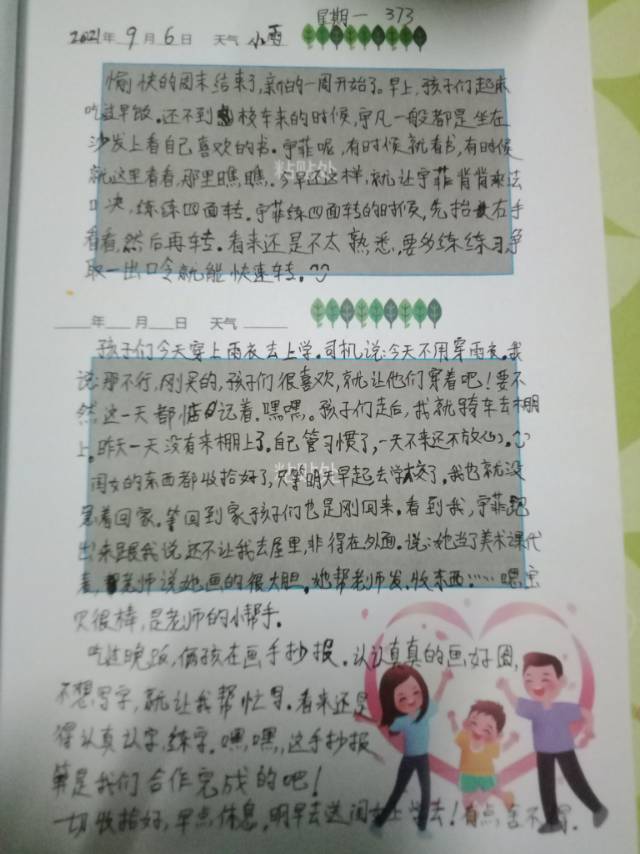 星期一 373
2021年9月6日 天气 小雨
愉快的周末结束了,新的一周开始了。早上,孩子们起来
吃过早饭。还不到校车来的时候,宇凡一般都是坐在
沙发上看自己喜欢的书。宇菲呢,有时候就看书,有时候
就这里看看,那里瞧瞧。今早还这样,就让宇菲背背乘法
口决,练练四面转。宇菲练四面转的时候,先抬右手
看看,然后再转。看来还是不太熟悉,要多练练习,争
取一出口令就能快速转。
粘贴处
年 月 日 天气
孩子们今天穿上雨衣去上学。司机说:今天不用穿雨衣。我
说:那不行,刚买的,孩子们很喜欢,就让他们穿着吧!要不
然这一天都惦记着。嘿嘿。孩子们走后,我就骑车去棚
上。昨天一天没有来棚上了。自己管习惯了,一天不来还不放心。
闺女的东西都收拾好了,只等明天早起去学校了。我也就没
急着回家。等回到家孩子们也是刚回来。看到我,宇菲跑
出来跟我说还不让我去屋里,非得在外面。说:她当了美术课代
表,老师说她画的很大胆。她帮老师发、收东西……嗯,宝
贝很棒,是老师的小帮手。
粘贴处
吃过晚饭,俩孩在画手抄报。认认真真的画好图,
不想写字,就让我帮忙写。看来还是
得认真认字,练字。嘿嘿,这手抄报
算是我们合作完成的吧!
一切收拾好,早点休息,明早去送闺女上学去!有点舍不得。